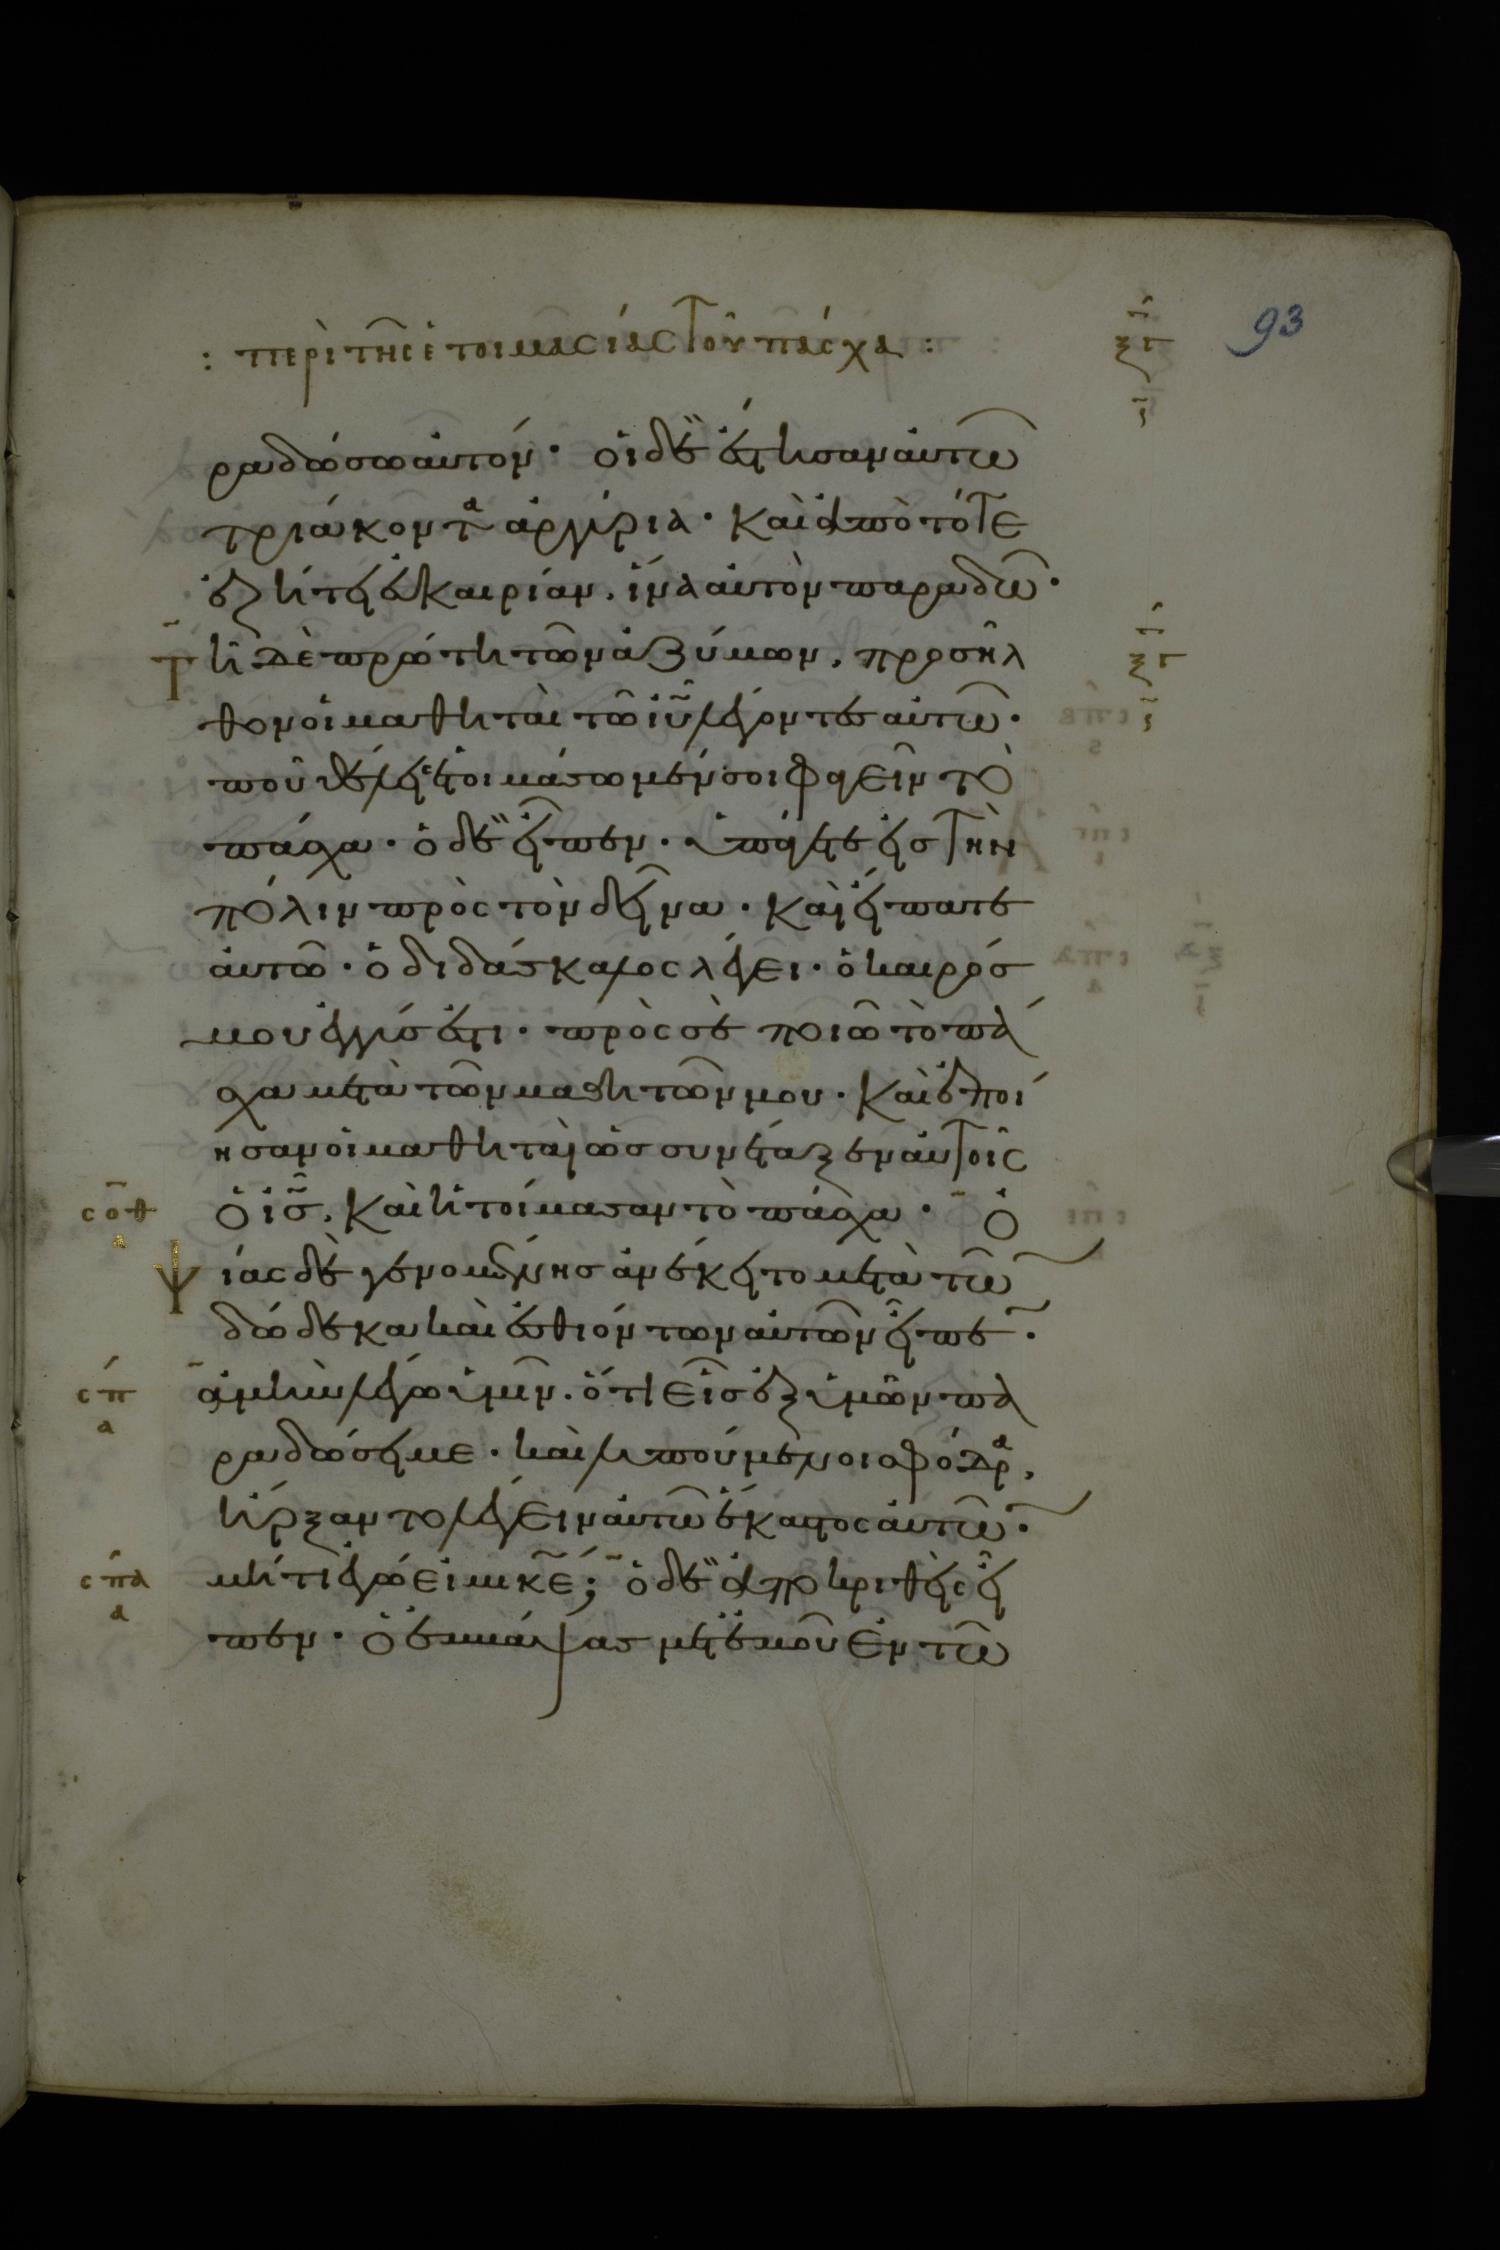 : περὶ τῆς ἑτοιμασίας τοῦ πάσχα :
93
ραδώσω αὐτόν · οἱ δὲ ἔστησαν αὐτῶ
τριάκοντα ἀργύρια · Καὶ ἀπὸ τότε
ἐζήτει εὐκαιρίαν, ἵνα αὐτὸν παραδῶ ·
Τῆ δὲ πρώτη τῶν ἀζύμων, προσῆλ
θον οἱ μαθηταὶ τῶ ιῦ λέγοντες αὐτῶ ·
ποῦ θέλεις ἑτοιμάσωμέν σοι φαγεῖν τὸ
πάσχα · ὁ δὲ εἶπεν · ὑπάγετε εἰς τὴν
πόλιν πρὸς τὸν δεῖνα · Καὶ εἴπατε
αὐτῶ · ὁ διδάσκαλος λέγει · ὁ καιρός
μου ἐγγύς ἐστι · πρὸς σὲ ποιῶ τὸ πά
σχα μετὰ τῶν μαθητῶν μου · Καὶ ἐποί
ησαν οἱ μαθηταὶ ὡς συνέταξεν αὐτοῖς
ὁ ις, Καὶ ἡτοίμασαν τὸ πάσχα · Ὀ
σοθ
α
ψίας δὲ γενομένης ἀνέκειτο μετὰ τῶ
δώδεκα καὶ ἐσθιόντων αὐτῶν εἶπε ·
σπ
α
ἀμὴν λέγω ὑμῖν · ὅτι εἷς ἐξ ὑμῶν πα
ραδώσει με · καὶ λυπούμενοι σφόδρα,
ἤρξαντο λέγειν αὐτῶ ἕκαστος αὐτῶ ·
σπα
δ
μήτι ἐγώ εἰμι κε; ὁ δὲ ἀποκριθεὶς εἶ
πεν · ὁ ἐμβάψας μετ' ἐμοῦ ἐν τῶ